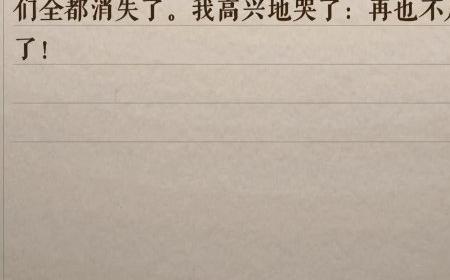 们全都消失了。我高兴地哭了：再也不
了！